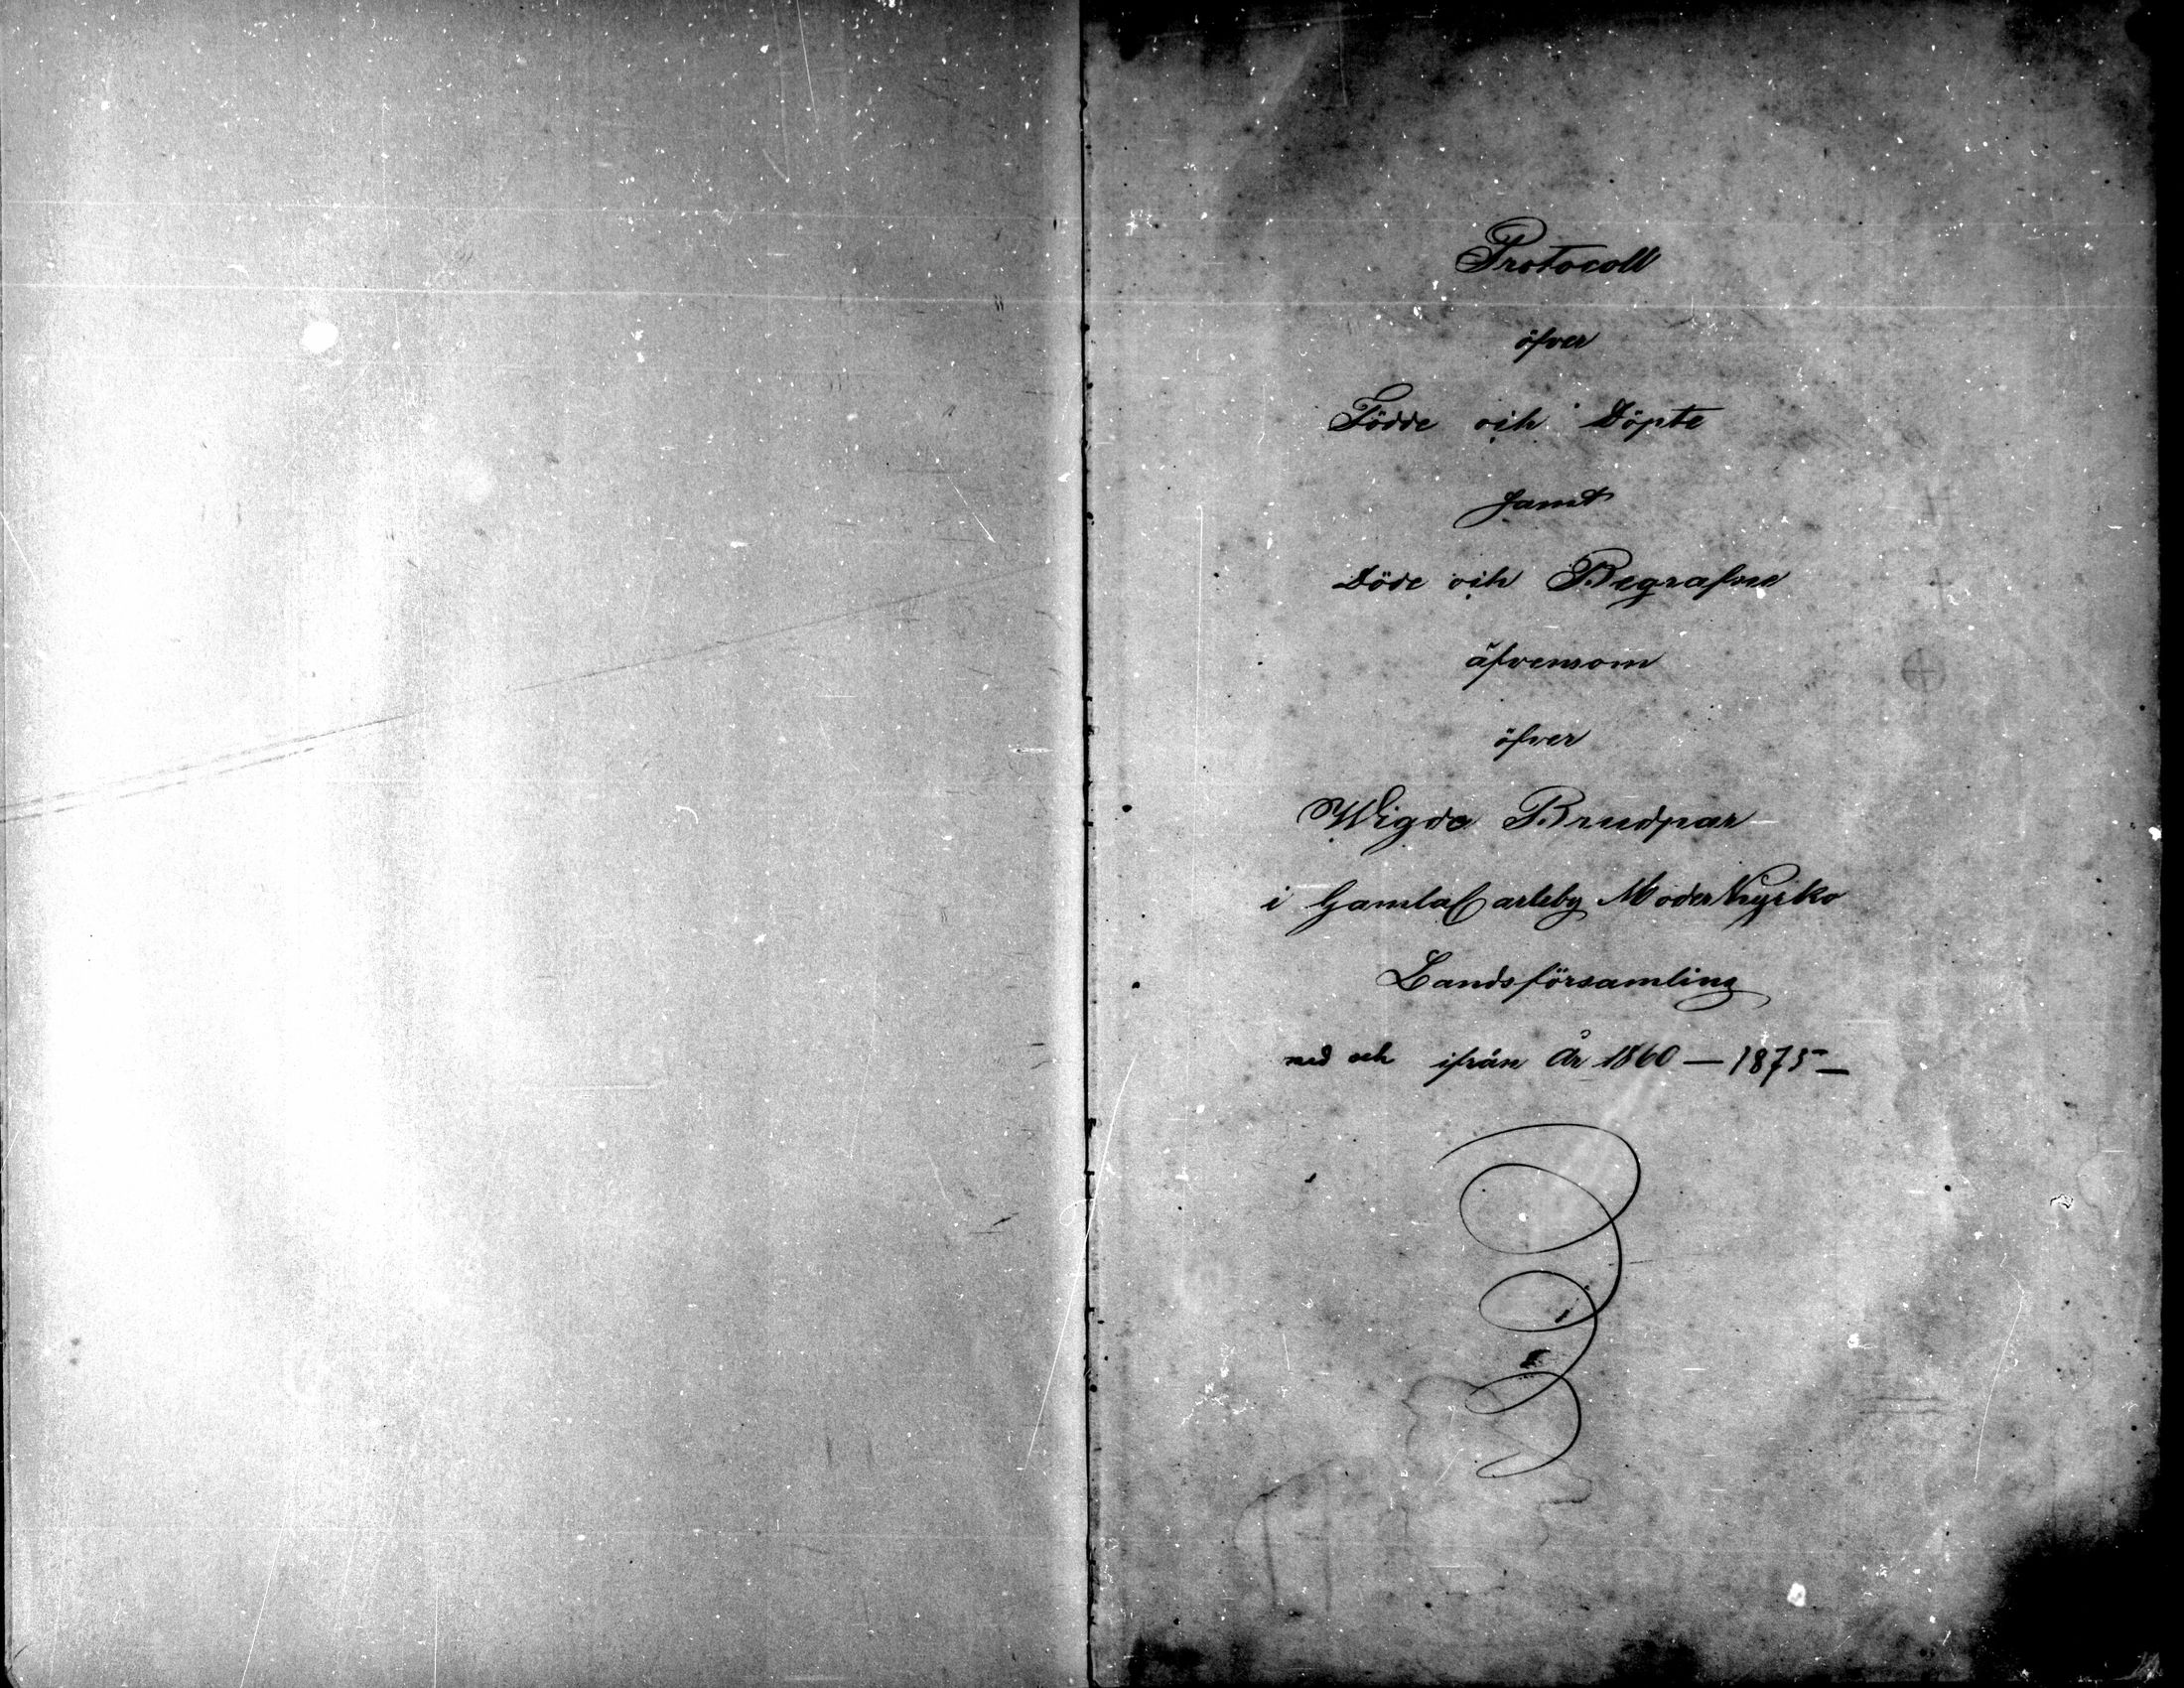 Protocoll
öfver
Födde och Döpte
samt
Döde och Begrafne
äfvensom
öfver
Wigda Brudpar
i GamlaCarleby ModerKyrko
Landsförsamling
med och ifrån År 1860 — 1875 —